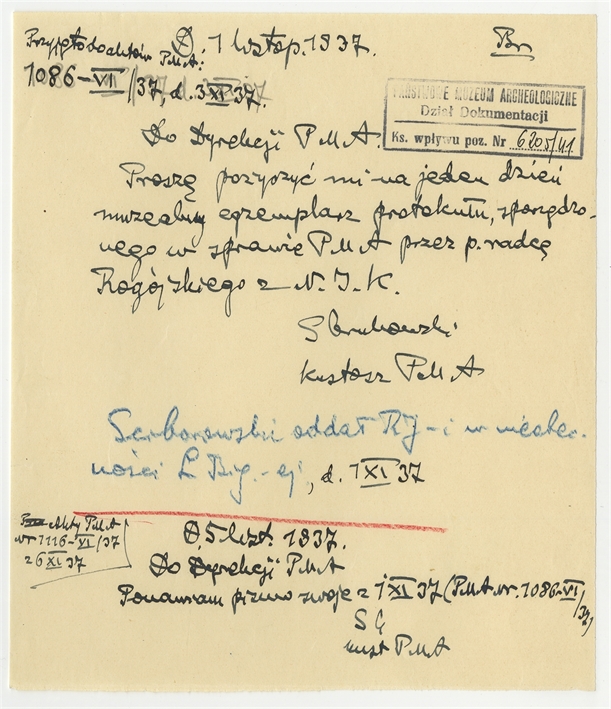 Przyjęto do aktów PMA:
1086-VI/37, d. 3 XI 37.
D. 1 listop. 1937.
Br
PAŃSTWOWE MUZEUM ARCHEOLOGICZNE
Dział Dokumentacji
Ks. wpływu poz. Nr 6205/41
Do Dyrekcji P.M.A.
Proszę pożyczyć mi na jeden dzień
muzealny egzemplarz protokułu, sporządzo-
nego w sprawie P.M.A przez p. radcę
Rogójskiego z N.I.K.
kustosz P.M.A
oddał RJ-i w nieobec-
ności L Big.-ej, d. 1 XI 37
Akty P.M.A
nr 1116-VI/37
z 6 XI 37
D. 5 list. 1937.
Do Dyrekcji PMA
Ponawiam pismo swoje z 1 XI 37 (P.M.A nr. 1086-VI/37)
kust PMA